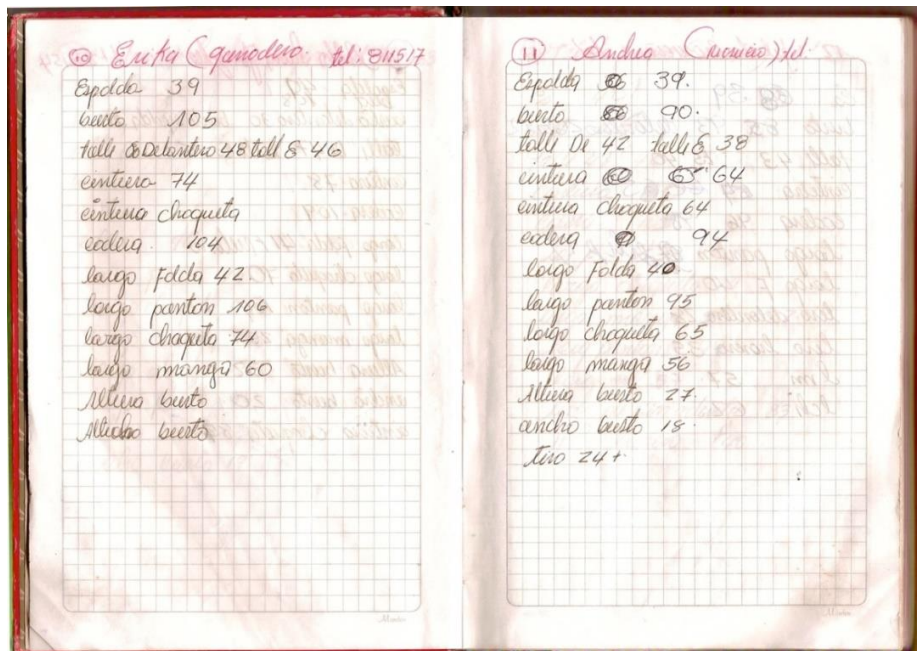 10 Erika (ganadero. tel: 811517
Espalda 39
busto 105
talle Delantero 48 tall E 46
cintura 74
cintura chaqueta
cadera. 104
largo Falda 42.
largo panton 106
largo chaqueta 74
largo manga 60
Altura busto
busto
11 Andrea tel:
Espalda 39.
busto 90.
talle De 42 talle E 38
cintura 64
cintura chaqueta 64
cadera 94
largo Falda 40
largo panton 95
largo chaqueta 65
largo manga 56
Altura busto 27.
ancho busto 18.
tiro 24+